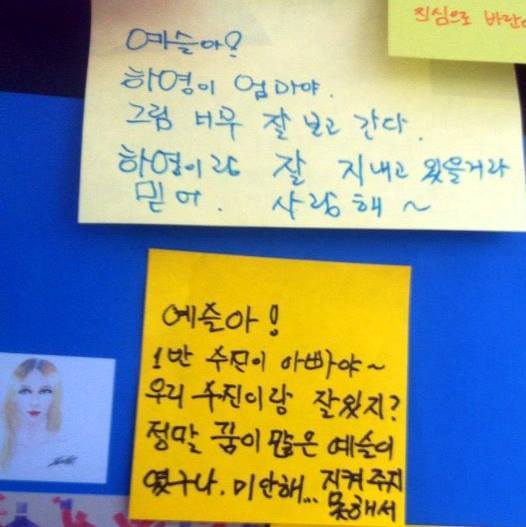 진심으로 바란
예슬아?
하영이 엄마야.
그림 너무 잘 보고 간다.
하영이랑 잘 지내고 있을거라
믿어. 사랑해~
예슬아!
1반 수진이 아빠야~
우리 수진이랑 잘있지?
정말 꿈이 많은 예슬이
였구나. 미안해... 지켜주지
못해서